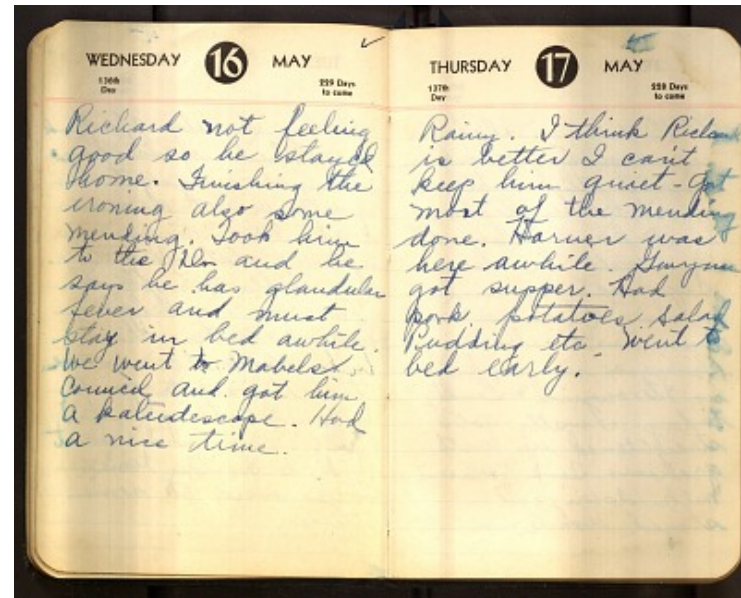 WEDNESDAY 16 MAY
136th Day
229 Days to come
Richard not feeling
good so he stayed
home. Finishing the
ironing also some
mending. Took him
to the Drs and he
says he has glandular
fever and must
stay in bed awhile.
We went to Mabels
Council and got him
a kaleidescope. Had
a nice time.
THURSDAY 17 MAY
137th Day
228 Days to come
Rainy. I think
is better I can't
keep him quiet - got
most of the mending
done. Harner was
here awhile.
got supper. Had
pork potatoes salad
Pudding etc. Went to
bed early.